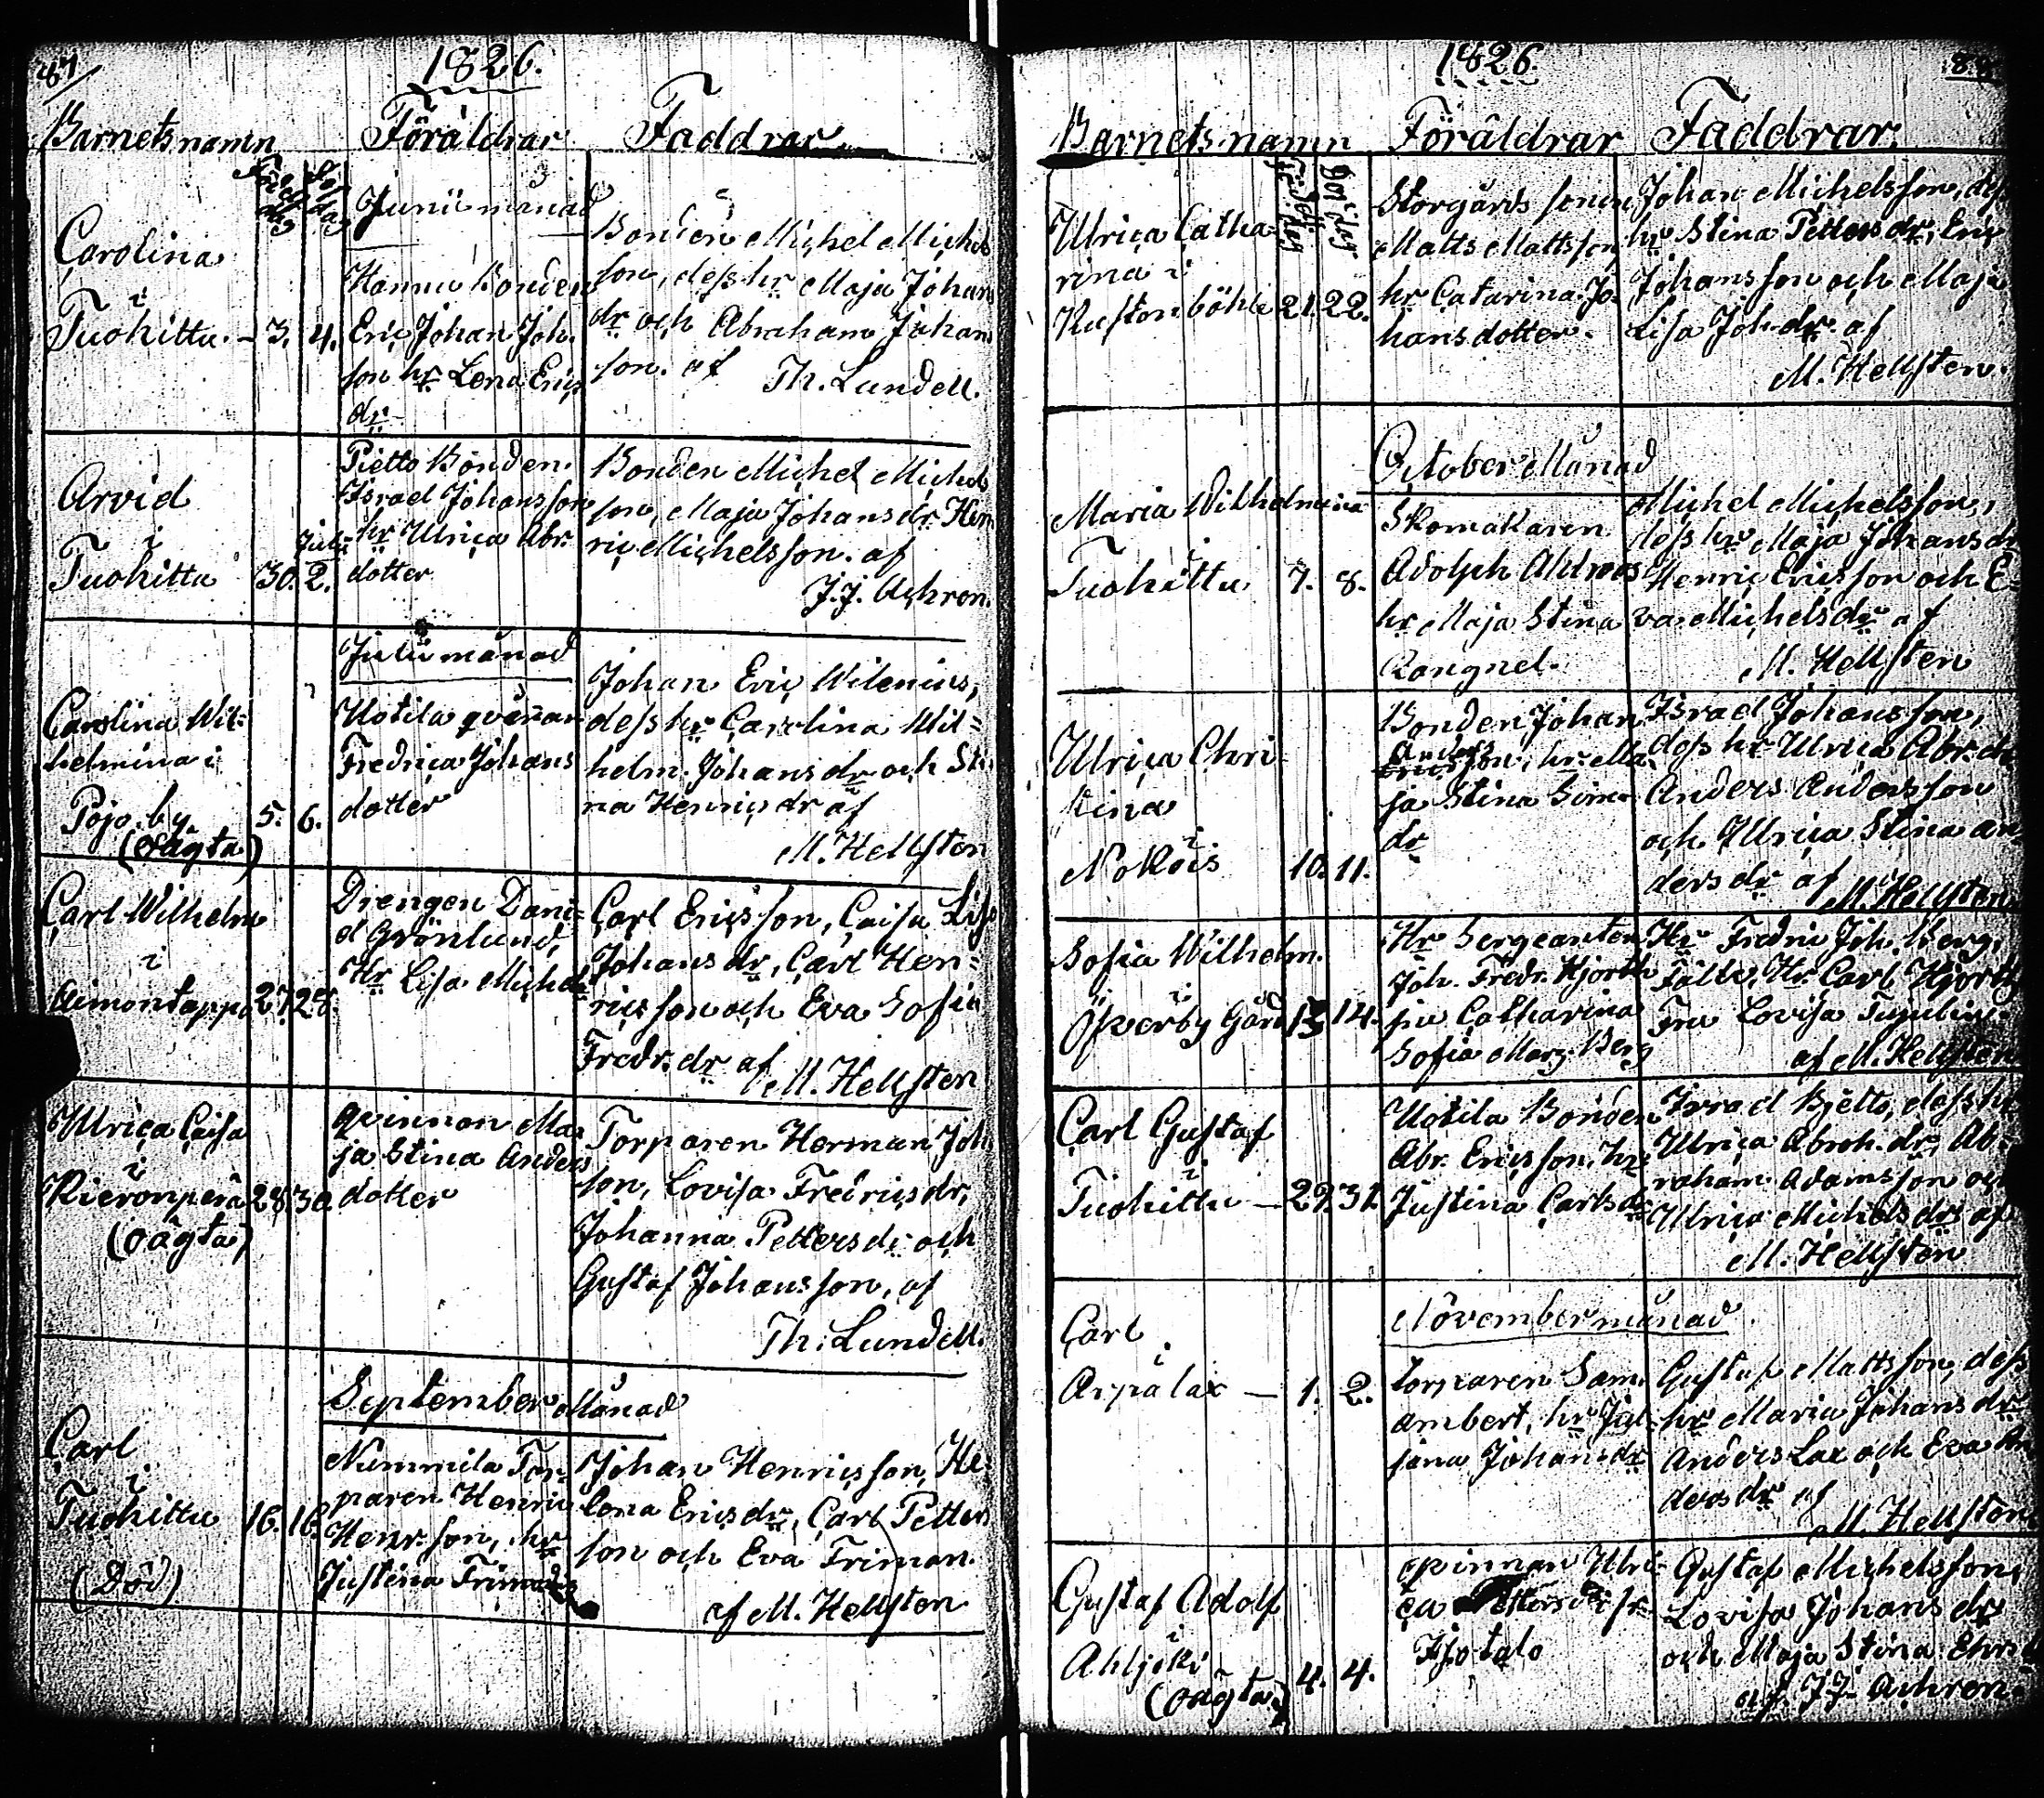 87
1826.
Barnets namn Föräldrar Faddrar
Född dag
Döp. dag
Junii månad
Carolina
i
Tuohittu - 3. 4.
Hannu Bonden
Eric Johan Joh.
son hr Lena Erics
dr
Bonden Michel Michels
son, dess hr Maja Johans
dr och Abraham Johans
son. af
Th. Lundell.
Arvid
i
Tuohittu 30. Julii 2.
Pietto Bonden
Israel Johansson
hr Ulrica Abr.
dotter
Bonden Michel Michels
son, Maja Johansdr. Hen
ric Michelsson. af
J. J. Achren.
Julii månad
Carolina Wil=
helmina i
Pojo by 5. 6.
(oägta)
Uotila qvinnan
Fredrica Johans
dotter
Johan Eric Wilenius,
dess hr Carolina Wil=
helm. Johansdr och Sti
na Henricsdr af
M. Hellsten
Carl Wilhelm
i
Aimontappa 27. 28.
Drengen Dani=
el Grönlund,
Hr Lisa Michdr
Carl Ericsson, Caisa Lisa
Johansdr, Carl Hen=
ricsson och Eva Sofia
Fredr. dr af
M. Hellsten
Ulrica Caisa
i
Kieronperä 28. 30.
(oägta)
qvinnan Ma=
ja Stina Anders
dotter
Torparen Herman Joh
son, Lovisa Fredricsdr,
Johanna Pettersdr och
Gustaf Johansson, af
Th. Lundell.
September Månad
Carl
i
Tuohittu 16. 16.
(Död)
Nummila Tor=
paren Henric
Henr. son, hr
Justina Friman
Johan Henricsson, He=
lena Ericsdr, Carl Petters
son och Eva Friman.
af M. Hellsten
1826.
88
Barnets namn Föräldrar Faddrar.
Född dag
Döp. dag
Ulrica Catha=
rina i
Kustonböhle 21. 22.
Storgårds sonen
Matts Mattsson
hr Catarina Jo=
hansdotter.
Johan Michelsson, dess
hr Stina Pettersdr, Eric
Johansson och Maja
Lisa Joh. dr af
M. Hellsten.
October Månad
Maria Wilhelmina
i
Tuohittu 7. 8.
Skomakaren
Adolph Ahlroos
hr Maja Stina
Rangnel.
Michel Michelsson,
dess hr Maja Johansdr
Henric Ericsson och E=
va Michelsdr af
M. Hellsten
Ulrica Chri
stina
i
Nokois 10. 11.
Bonden Johan
Anders
Ericsson, hr Ma
ja Stina Sim.
dr
Israel Johansson,
dess hr Ulrica Abr. dr
Anders Andersson
och Ulrica Stina An
dersdr af
M. Hellsten
Sofia Wilhelm.
i
Åkerby Gård 13 14.
Hr Sergeanten
Joh. Fredr. Hjorth
fru Catharina
Sofia Marg. Berg
Hr Fredric Joh. Berg,
Fältv. Hr. Carl Hjorth
Fru Lovisa
af M. Hellsten
Carl Gustaf
i
Tuohittu - 29. 31.
Uotila Bonden
Abr. Ericsson, hr
Justina Carlsdr
Israel Bjetto, dess hr
Ulrica Abrah. dr, Ab=
raham Adamsson och
Ulrica Michelsdr af
M. Hellsten
November månad
Carl
i
Arpalax - 1. 2.
torparen Sam.
ambert, hr Jul
jana Johansdr
Gustaf Mattsson, dess
hr Maria Johansdr
Anders Lax och Eva An
dersdr af
M. Hellsten
Gustaf Adolf
i
Ahljoki 4. 4.
(oägta)
qvinnan Ulri=
ca Pettersdr fr
Isotalo
Gustaf Michelsson,
Lovisa Johansdr
och Maja Stina
af J. J. Achren.